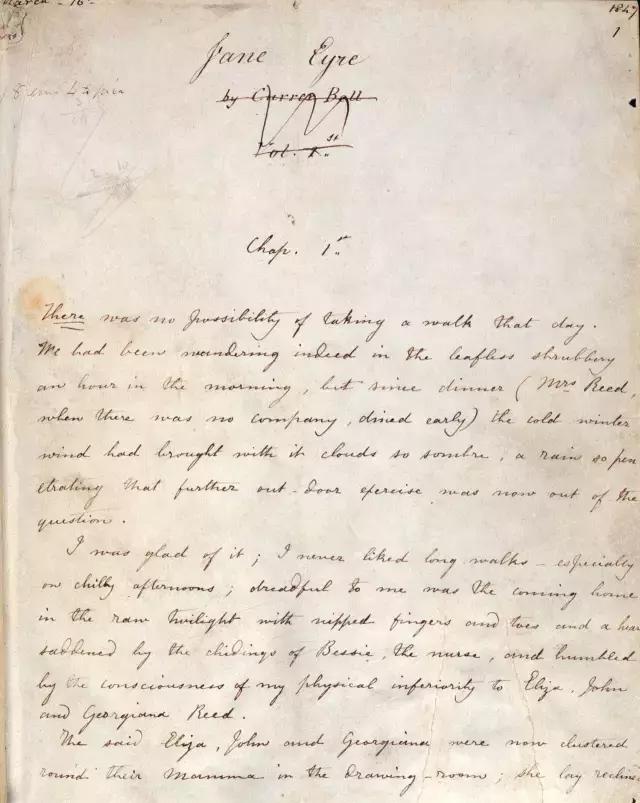 March 16
1847
1
Jane Eyre
by Currer Bell
Vol. 1.st
Chap. 1st
There was no possibility of taking a walk that day.
We had been wandering indeed in the leafless shrubbery
an hour in the morning, but since dinner (Mrs Reed,
when there was no company, dined early) the cold winter
wind had brought with it clouds so sombre, a rain so pen
etrating that further out-door exercise was now out of the
question.
I was glad of it; I never liked long walks - especially
on chilly afternoons; dreadful to me was the coming home
in the raw twilight with nipped fingers and toes and a hear
saddened by the chidings of Bessie, the nurse, and humbled
by the consciousness of my physical inferiority to Eliza, John
and Georgiana Reed.
The said Eliza, John and Georgiana were now clustered
round their Mamma in the drawing-room; she lay recline